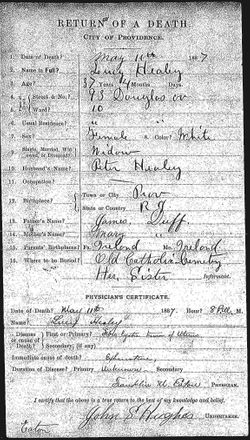 RETURN OF A DEATH.
CITY OF PROVIDENCE.
1. Date of Death? May 11th 1887
2. Name in Full? Lucy Healey
3. Age? Years Months Days
4. Street & No.? Douglas av
Ward? 10
6. Usual Residence? " "
7. Sex? Female 8. Color? White
9. Single, Married, Widowed, or Divorced? Widow
10. Husband's Name? Peter Healey
11. Occupation?
12. Birthplace? Town or City Prov
State or Country R I
13. Father's Name? James Duff
14. Mother's Name? Mary "
15. Parents' Birthplace? Fa. Ireland Mo. Ireland
16. Where to be Buried? Old Catholic Cemetery
Her Sister Informant.
PHYSICIAN'S CERTIFICATE.
Date of Death? May 11th 1887. Hour? 8 P.M.
Name? Lucy Healey
Disease or cause of Death? Primary, of Uterus
Secondary, (if any)
Immediate cause of Death?
Duration of Disease? Primary, Unknown Secondary,
I certify that the above is a true return to the best of my knowledge and belief.
John E Hughes UNDERTAKER.